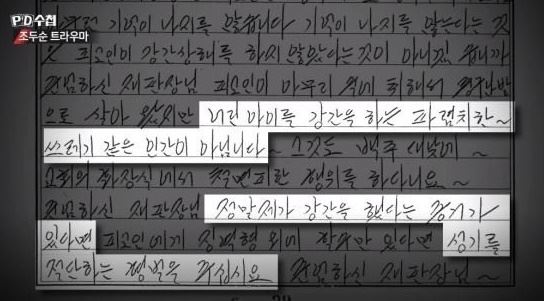 PD수첩
조두순 트라우마
기억이 나지를 않습니다 기억이 나지를 않는다는 것
은 피고인이 강간상해를 하지 않았다는것이 아니겠습니까
존경하신 재판장님 피고인이 아무리 술에 취해서
으로 살아 왔지만 어린아이를 강간을 하는 파렴치한~
쓰레기 같은 인간이 아닙니다~ 그것도 백주 대낮에~
교회의 화장실에서 철면피한 행위를 하다니요~
존경하신 재판장님 정말제가 강간을 했다는 증거가
있다면 피고인에게 징역형 외에 할수만 있다면 성기를
절단하는 형벌을 주십시요 존경하신 재판장님~